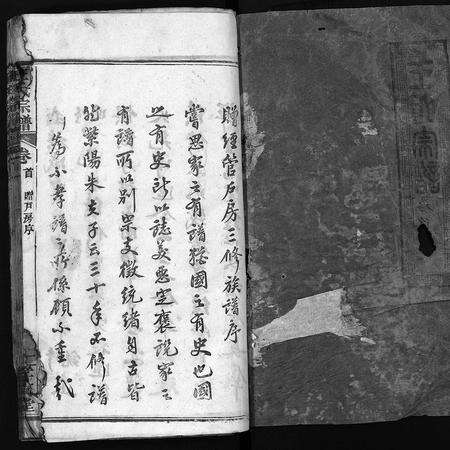 贈經管戶房三修族譜序
嘗思家之有譜猶國之有史也國
之有史所以誌美惡定褒說家之
有譜所以別宗支徵統緒自古皆
然紫陽朱夫子云三十年不修譜
為不孝譜之所係顧不重哉
宗譜
卷首
贈戶房序